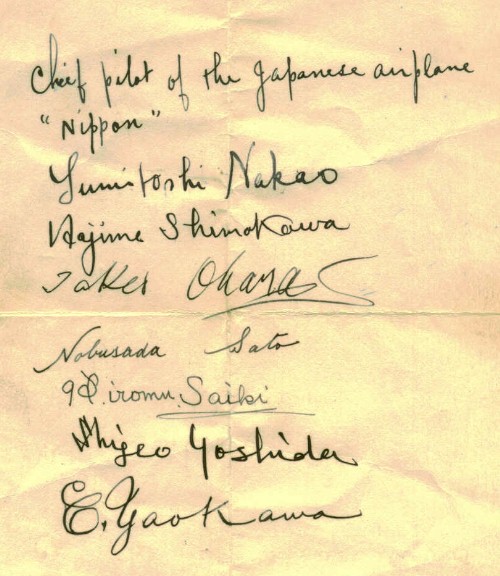 Chief pilot of the Japanese airplane
"Nippon"
Sumitoshi Nakao
Hajime Shimokawa
Takeo Ohara
Nobusada Sato
Hiromu Saiki
Shigeo Yoshida
E. Yaokawa